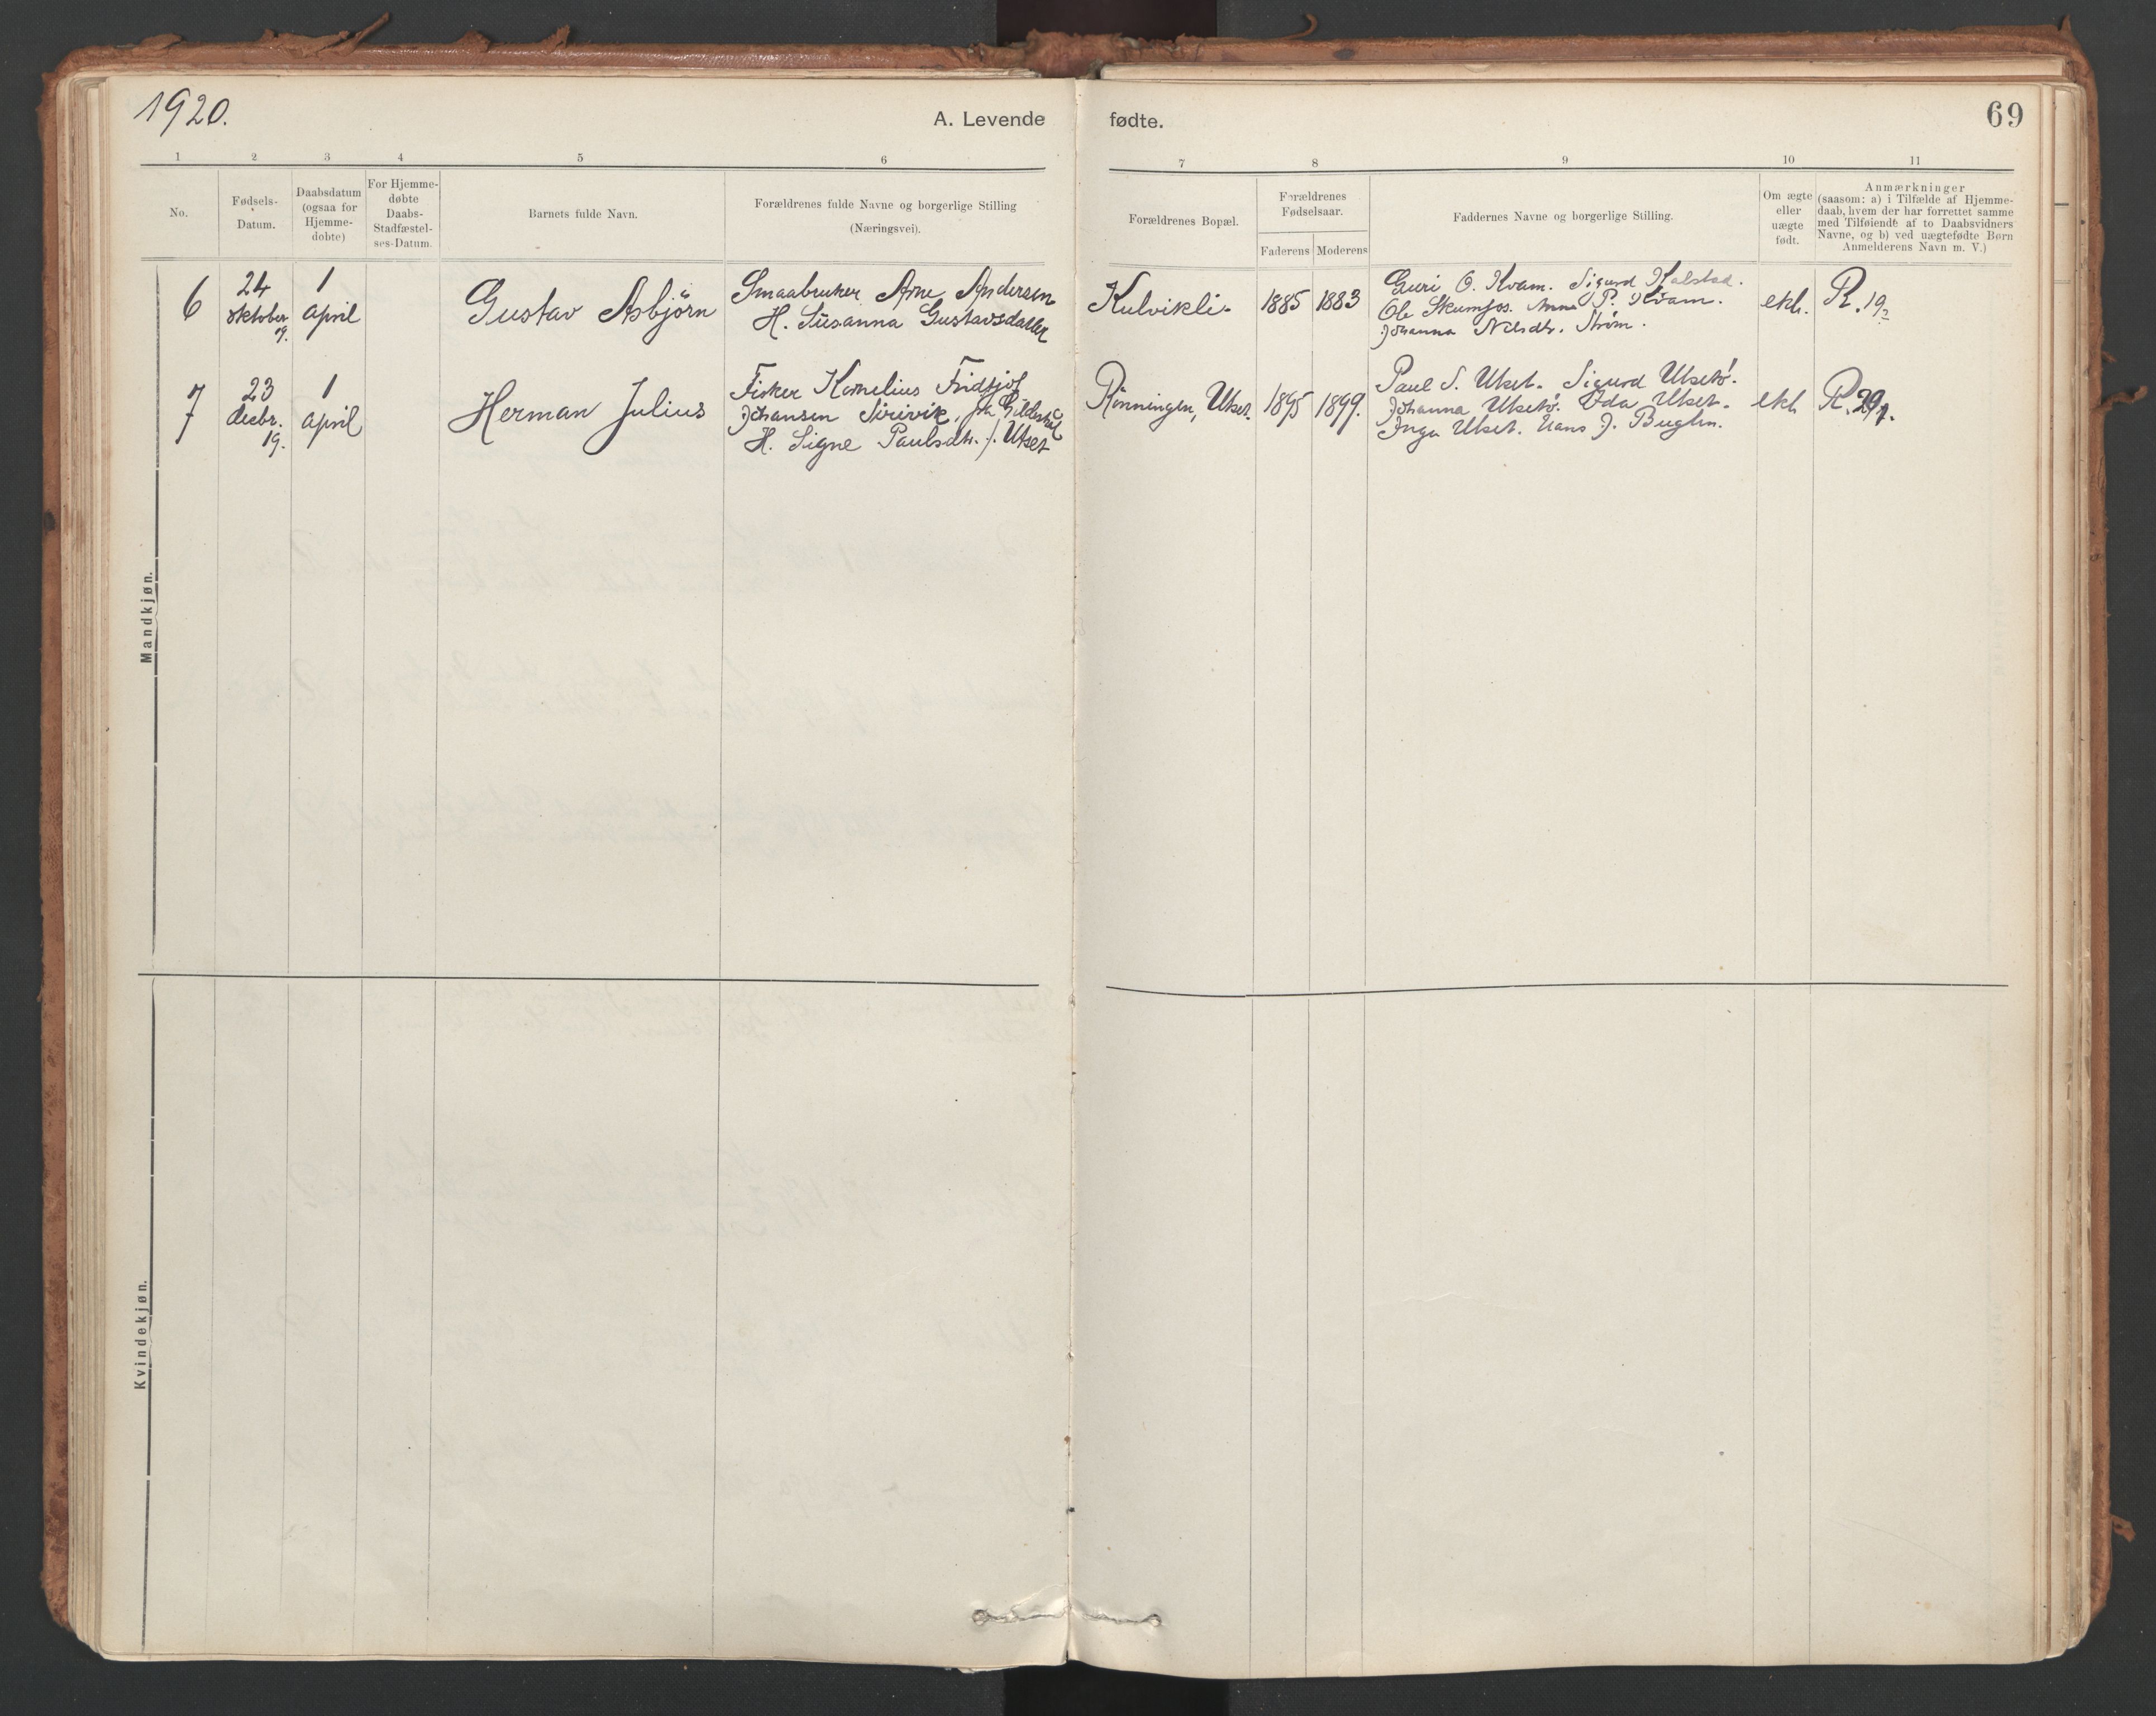 1920.
A. Levende fødte.
69
1 2 3 4 5 6 7 8 9 10 11
No.
Fødsels-
Datum.
Daabsdatum
(ogsaa for
Hjemme-
dobte)
For Hjemme-
døbte
Daabs-
Stadfæstel-
ses-Datum.
Barnets fulde Navn.
Forældrenes fulde Navne og borgerlige Stilling
(Næringsvei).
Forældrenes Bopæl.
Forældrenes
Fødselsaar.
Faderens Moderens
Faddernes Navne og borgerlige Stilling.
Om ægte
eller
uægte
født.
Anmærkninger
(saasom: a) i Tilfælde af Hjemme-
daab, hvem der har forrettet samme
med Tilføiende af to Daabsvidners
Navne, og b) ved uægtefødte Børn
Anmelderens Navn m. V.)
Mandkjøn.
6
24
oktober
19.
1
april
Gustav Asbjörn
Smaabruker Arne Andersen
H. Susanna Gustavsdatter
Kulvikli.
1885 1883
Guri O. Kvam. Sigurd Kalstad.
Ole Skumfos. Anna P. Kvam.
Johanna Nilsdtr. Strøm.
ekt.
R. 19
7
23
decbr.
19.
1
april
Herman Julius
Fisker Kornelius Fridtjof
Johansen Sörivik, fra Gildeskål
H. Signe Paulsdtr. f. Utset
Rönningen, Utset.
1895 1899.
Paul S. Utset. Sigurd Utsetö.
Johanna Utsetö. Oda Utset.
Inga Utset. Hans J. Buglin.
ekt
R.
Kvindekjøn.